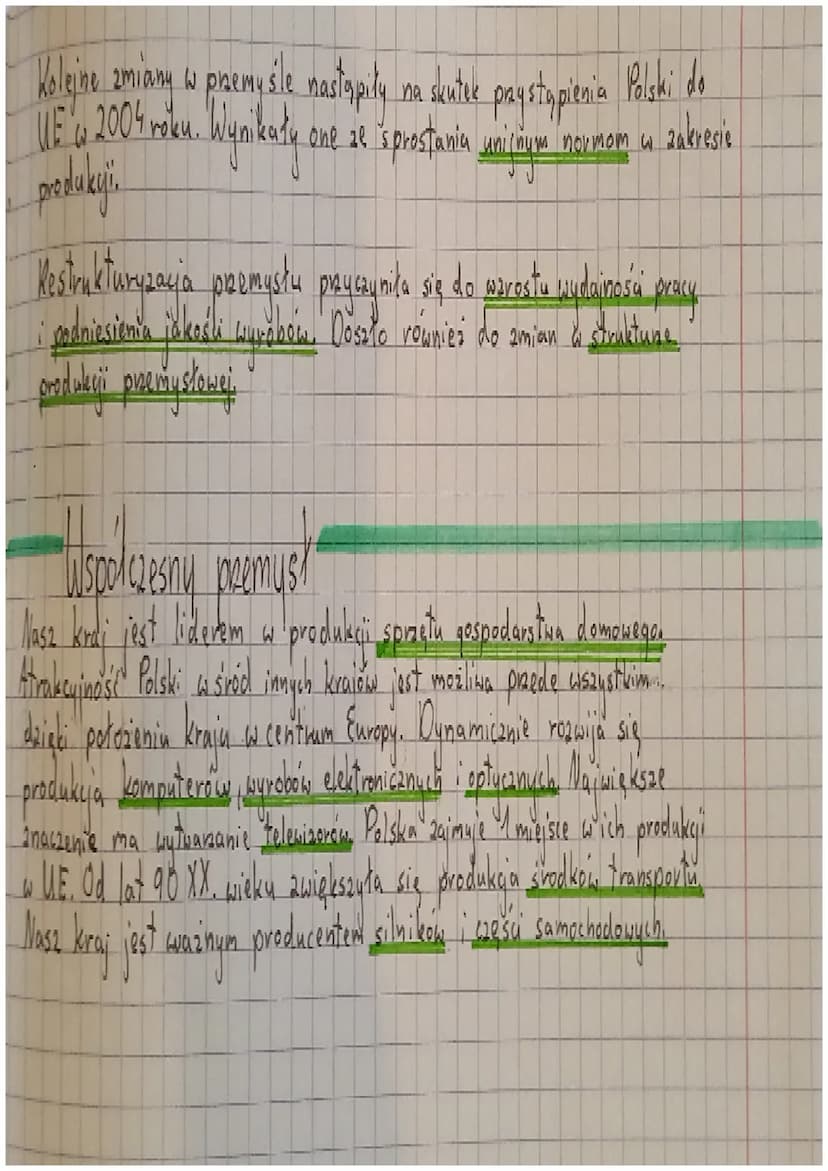 Kolejne zmiany w przemyśle nastąpiły na skutek przystąpienia Polski do
UE w 2004 roku. Wynikały one ze sprostania unijnym normom w zakresie
produkcji.
Restrukturyzacja przemysłu przyczyniła się do wzrostu wydajności pracy
i podniesienia jakości wyrobów. Doszło również do zmian w strukturze
produkcji przemysłowej.
Współczesny przemysł
Nasz kraj jest liderem w produkcji sprzętu gospodarstwa domowego.
Atrakcyjność Polski wśród innych krajów jest możliwa przede wszystkim
dzięki położeniu kraju w centrum Europy. Dynamicznie rozwija się
produkcja komputerów, wyrobów elektronicznych i optycznych. Największe
znaczenie ma wytwarzanie telewizorów. Polska zajmuje 1 miejsce w ich produkcji
w UE. Od lat 90 XX. wieku zwiększyła się produkcja środków transportu.
Nasz kraj jest ważnym producentem silników i części samochodowych.